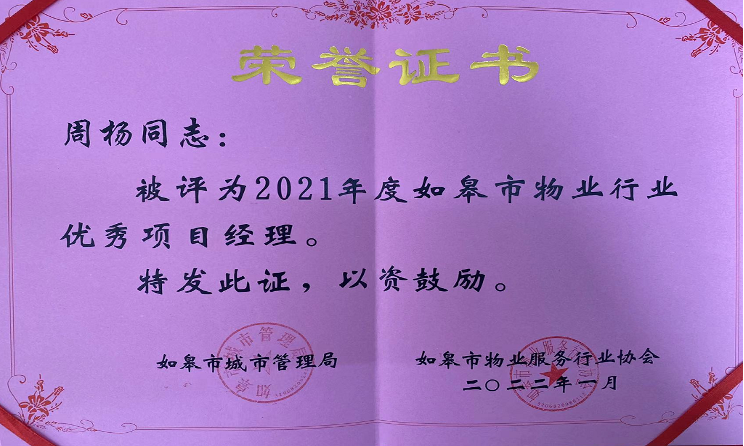 荣誉证书
周杨同志：
被评为2021年度如皋市物业行业
优秀项目经理。
特发此证，以资鼓励。
如皋市城市管理局
如皋市物业服务行业协会
二〇二二年一月